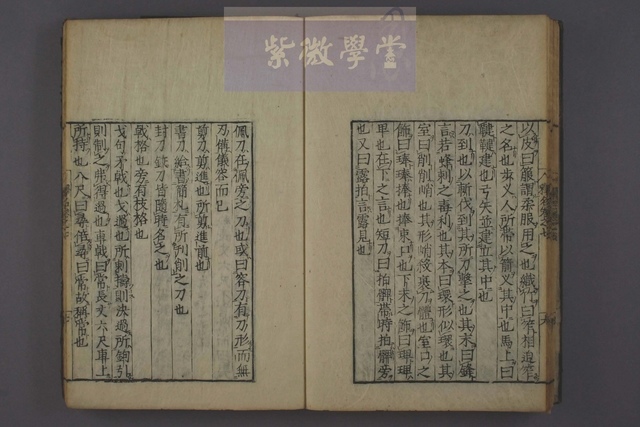 紫微學堂
以皮曰箙謂柔服用之也織竹曰笮相迫笮
之名也步叉人所帶以箭叉其中也馬上曰
鞬鞬建也弓矢並建立其中也
刀到也以斬伐到其所刀擊之也其末曰鋒
言若蜂刺之毒利也其本曰環形似環也其
室曰削削峭也其形峭殺裹刀體也室口之
飾曰琫琫捧也捧束口也下末之飾曰琕琕
卑也在下之言也短刀曰拍髀帶時拍髀旁
也又曰露拍言露見也
佩刀在佩旁之刀也或曰容刀有刀形而無
刃備儀容而已
剪刀剪進也所剪進前也
書刀給書簡札有所刊削之刀也
封刀鉸刀皆隨時名之也
戟格也旁有枝格也
戈句矛戟也戈過也所刺擣則決過所鉤引
則制之弗得過也車戟曰常長丈六尺車上
所持也八尺曰尋倍尋曰常故稱常也